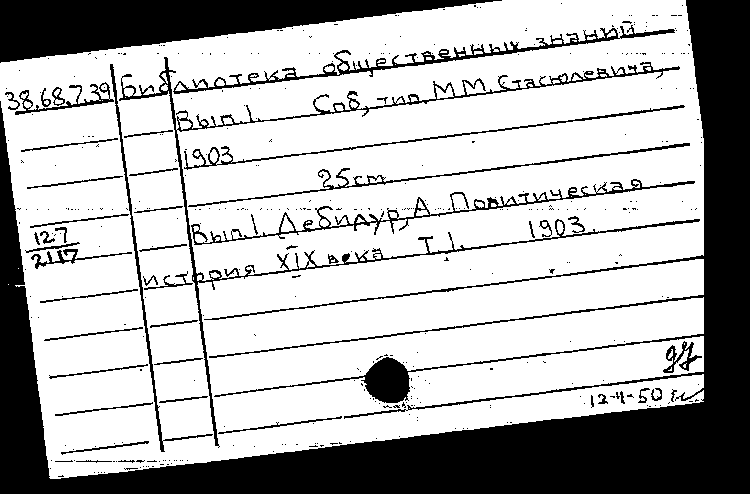 38.68.7.39 Библиотека общественных знаний.
Вып.1. Спб, тип. М.М. Стасюлевича,
1903
25cm.
127
2117
Вып.1. Дебидур, А. Политическая
история XIX века. Т.1. 1903.
12-4-50